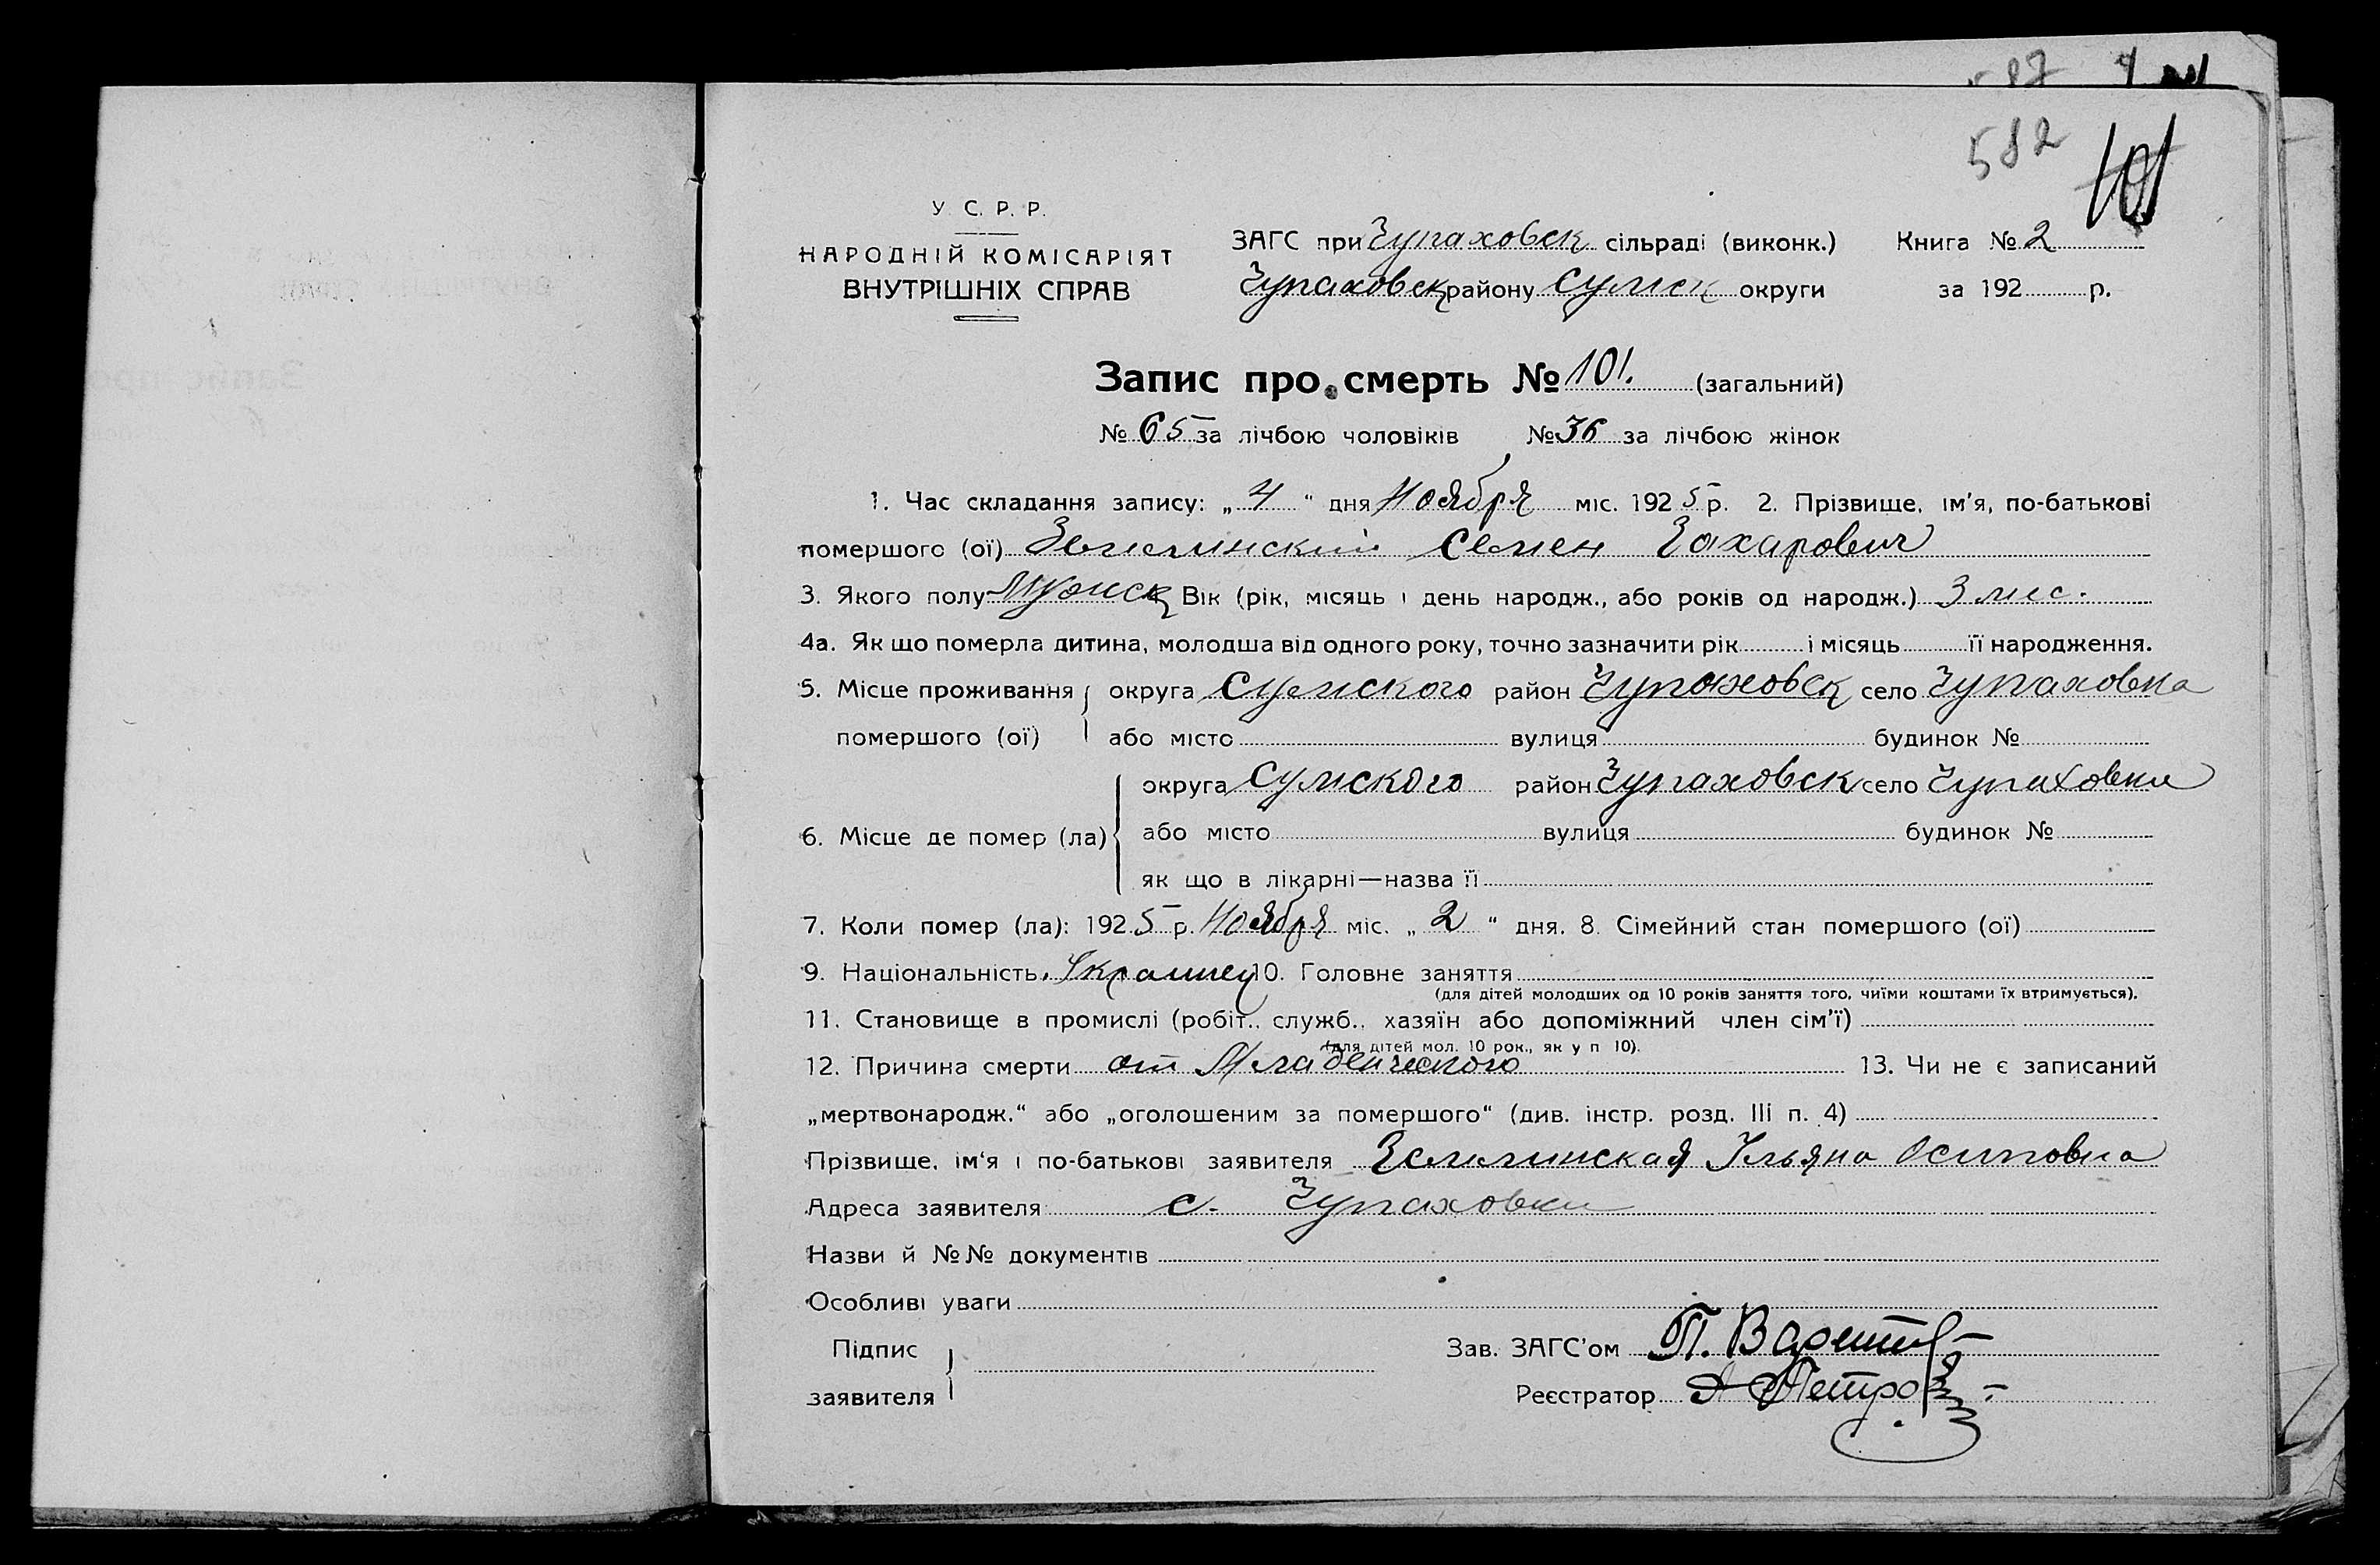 587
582 101
У. С. Р. Р.
НАРОДНІЙ КОМІСАРІЯТ
ВНУТРІШНІХ СПРАВ
ЗАГС при Чупаховск сільраді (виконк.) Книга № 2
Чупаховск району Сумск округи за 192 р.
Запис про смерть № 101. (загальний)
№ 65 за лічбою чоловіків № 36 за лічбою жінок
1. Час складання запису: „ 4 “ дня Ноября міс. 192 5 р. 2. Прізвище, ім'я, по-батькові
помершого (ої) Семен Захарович
3. Якого полу Мужск Вік (рік, місяць і день народж., або років од народж.) 3 мис.
4а. Як що померла дитина, молодша від одного року, точно зазначити рік і місяць її народження.
5. Місце проживання помершого (ої) округа Сумского район Чупаховск село Чупаховка
або місто вулиця будинок №
6. Місце де помер (ла) округа Сумского район Чупаховск село Чупаховка
або місто вулиця будинок №
як що в лікарні—назва її
7. Коли помер (ла): 192 5 р. Ноября міс. „ 2 “ дня. 8. Сімейний стан помершого (ої)
9. Національність. Украинец 10. Головне заняття
(для дітей молодших од 10 років заняття того, чиїми коштами їх втримується).
11. Становище в промислі (робіт., служб., хазяїн або допоміжний член сім'ї)
(для дітей мол. 10 рок., як у п 10).
12. Причина смерти от Младенческого 13. Чи не є записаний
„мертвонародж.“ або „оголошеним за помершого“ (див. інстр. розд. III п. 4)
Прізвище, ім'я і по-батькові заявителя Ульяна Осиповна
Адреса заявителя с. Чупаховки
Назви й №№ документів
Особливі уваги
Підпис заявителя
Зав. ЗАГС'ом П.
Реєстратор Петров